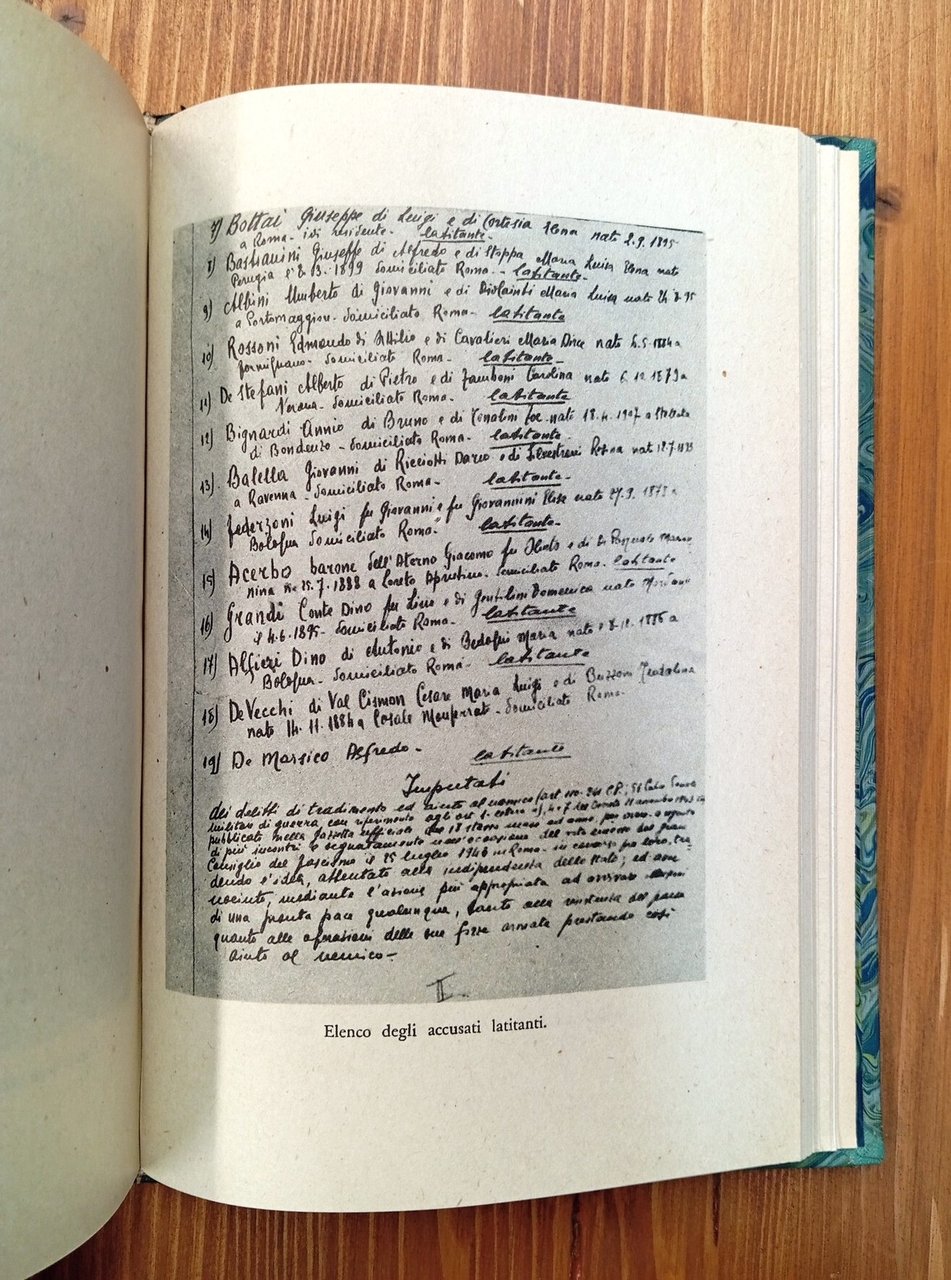 7) Bottai Giuseppe di Luigi e di Cortesia Elena nato 2.9.1895
a Roma - ivi residente - latitante -
8) Bastianini Giuseppe di Alfredo e di Stoppa Maria Luisa Elena nato
Perugia e' 8.3.1899 domiciliato Roma - latitante -
9) Albini Umberto di Giovanni e di Maria Luisa nato
a Portomaggiore - domiciliato Roma - latitante
10) Rossoni Edmondo di Attilio e di Cavalieri Maria Dirce nato 6.5.1884 a
domiciliato Roma - latitante -
11) De Stefani Alberto di Pietro e di Zamboni Carolina nato 6.12.1879 a
Verona - domiciliato Roma - latitante
12) Bignardi Annio di Bruno e di nato 18.4.1907 a
di Bondenzo - domiciliato Roma - latitante
13) Balella Giovanni di Ricciotti Dario e di Silvestroni nato
a Ravenna - domiciliato Roma - latitante -
14) Federzoni Luigi fu Giovanni e fu Giovannini Elisa nato 27.9.1878 a
Bologna domiciliato Roma - latitante -
15) Acerbo barone dell'Aterno Giacomo fu Olinto e di De Pasquale Maria
nina n. 25.7.1888 a Loreto Aprutino - domiciliato Roma - latitante
16) Grandi Conte Dino fu Lino e di Gentilini Domenica nato Mordano
il 4.6.1895 - domiciliato Roma - latitante
17) Alfieri Dino di Antonio e di Bedogni Maria nato e' 8.12.1886 a
Bologna - domiciliato Roma - latitante
18) De Vecchi di Val Cismon Cesare Maria Luigi e di Buzzoni Teodolina
nato 14.11.1884 a Casale Monferrato - domiciliato Roma -
19) De Marsico Alfredo - latitante
Imputati
dei delitti di tradimento ed aiuto al nemico (art.
militare di guerra, con riferimento agli art. 1 4 e 7 del Decreto 11 novembre
pubblicati nella Gazzetta ufficiale del 18 stesso mese ed anno, per avere, a seguito
di più incontri e segnatamente in occasione del voto emesso dal Gran
Consiglio del fascismo il 25 luglio 1943 in Roma - in concorso fra loro, tra
dendo l'idea, attentato alla indipendenza dello Stato; ed aver
nociuto, mediante l'azione più appropriata ad
di una pronta pace qualunque, tanto alla resistenza del paese
quanto alle operazioni delle sue forze armate prestando così
aiuto al nemico -
II
Elenco degli accusati latitanti.